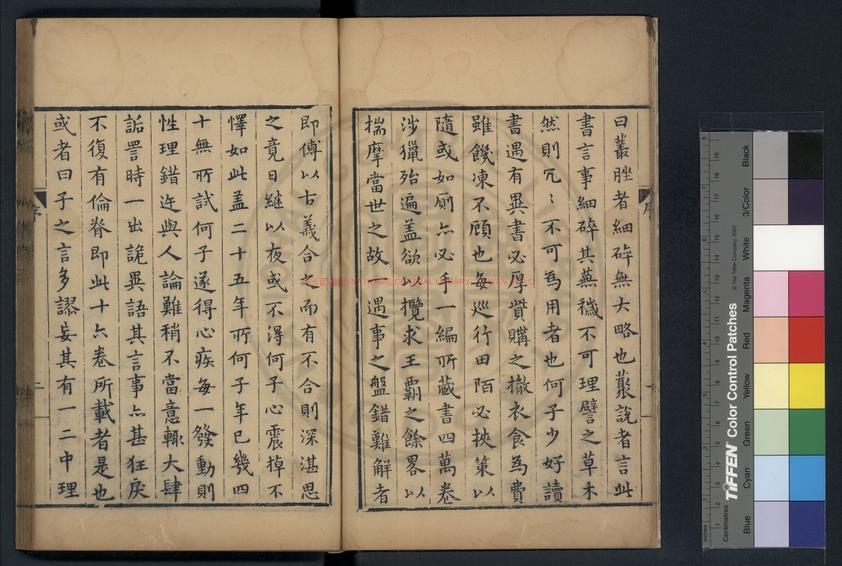 曰叢脞者細碎無大略也叢說者言此
書言事細碎其蕪穢不可理譬之草木
然則冗〻不可為用者也何子少好讀
書遇有異書必厚貲購之撤衣食為費
雖饑凍不顧也每巡行田陌必挾策以
隨或如厠亦必手一編所藏書四萬卷
涉獵殆遍蓋欲以攬求王霸之餘畧以
揣摩當世之故一遇事之盤錯難解者
即傅以古義合之而有不合則深湛思
之竟日繼以夜或不得何子心震掉不
懌如此盖二十五年所何子年已幾四
十無所試何子遂得心疾每一發動則
性理錯迕與人論難稍不當意輙大肆
詬詈時一出詭異語其言事亦甚狂戾
不復有倫脊即此十六卷所載者是也
或者曰子之言多謬妄其有一二中理
序
二
TIFFEN Color Control Patches
© The Tiffen Company, 2007
Centimetres
Inches
Blue
Cyan
Green
Yellow
Red
Magenta
White
3/Color
Black